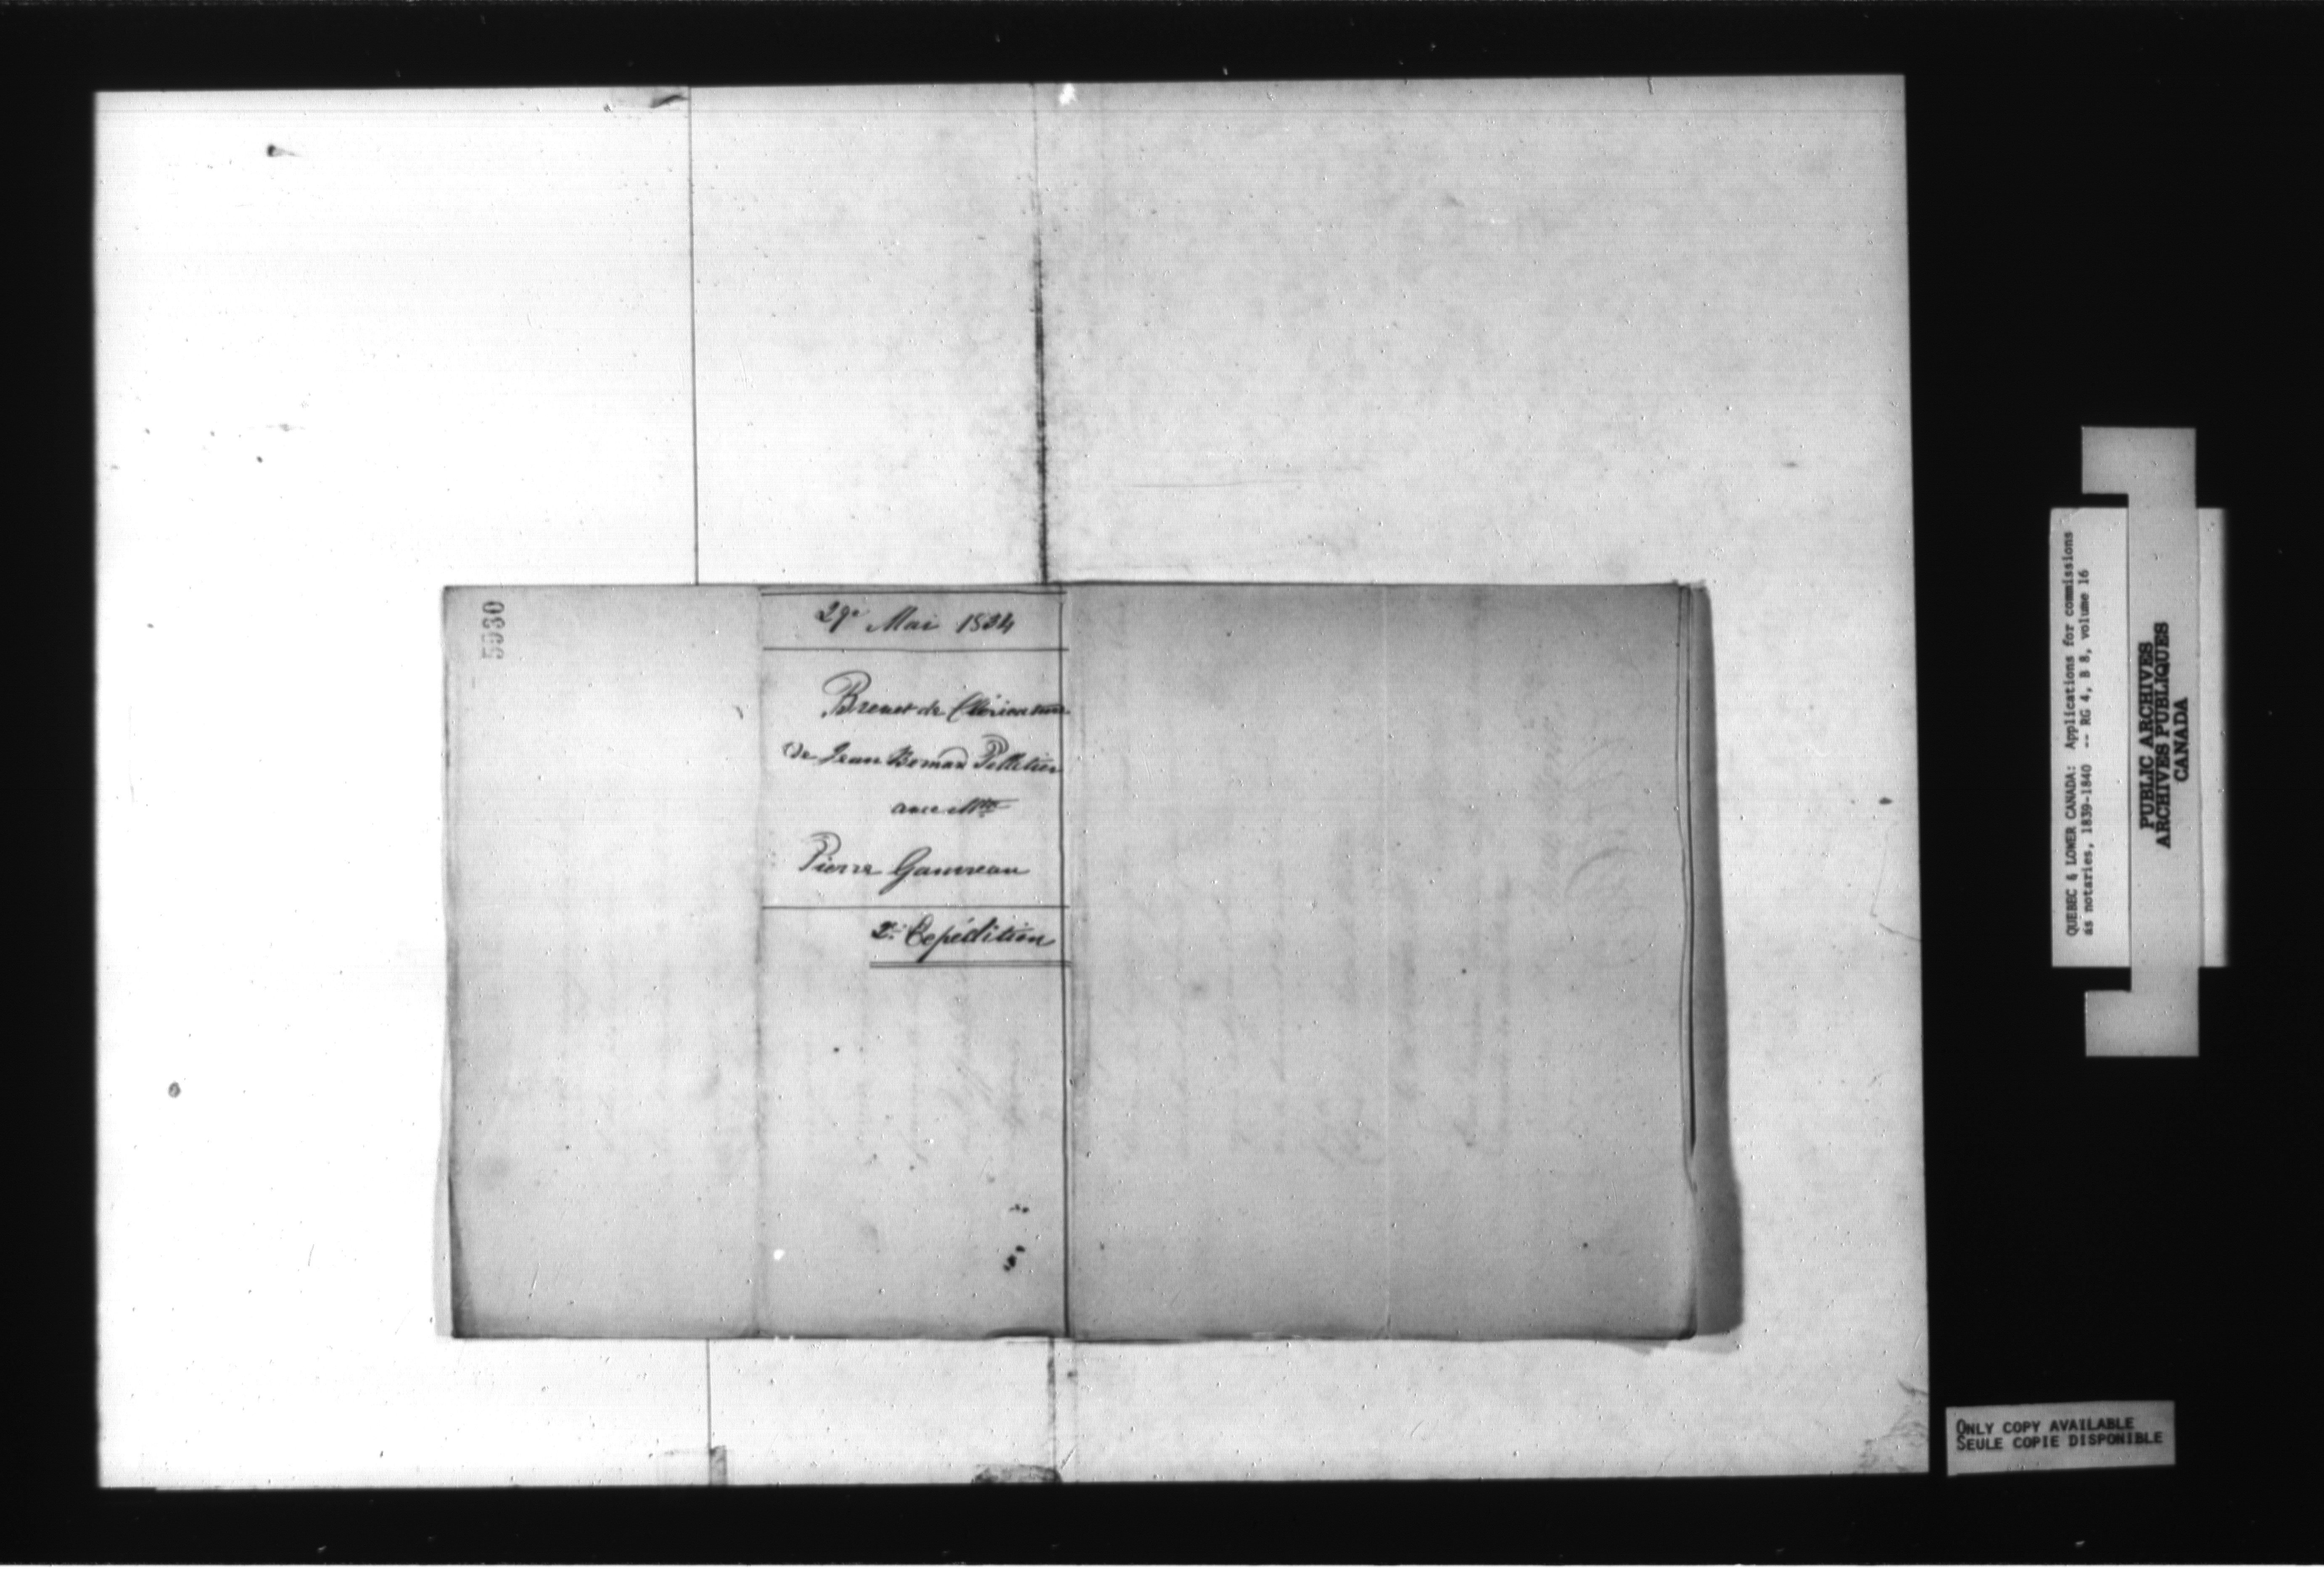 5530
29e Mai 1834
Brevet de Cléricature
de Jean Bernard Pelletier
avec Mtre
Pierre Gauvreau
2e Expédition
QUEBEC & LOWER CANADA: Applications for commissions
as notaries, 1839-1840 -- RG 4, B 8, volume 16
PUBLIC ARCHIVES
ARCHIVES PUBLIQUES
CANADA
ONLY COPY AVAILABLE
SEULE COPIE DISPONIBLE